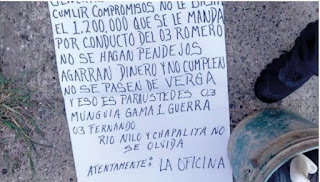 CUMLIR COMPROMISOS NO LE
EL 1.200,000 QUE SE LE MANDA
POR CONDUCTO DEL 03 ROMERO
NO SE HAGAN PENDEJOS
AGARRAN DINERO Y NO CUMPLEN
NO SE PASEN DE VERGA
Y ESO ES PARUSTEDES 03
MUNGUIA GAMA 1 GUERRA
03 FERNANDO
RIO NILO Y CHAPALITA NO
SE OLVIDA
ATENTAMENTE: LA OFICINA